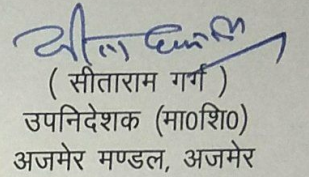 ( सीताराम गर्ग )
उपनिदेशक (मा०शि०)
अजमेर मण्डल, अजमेर